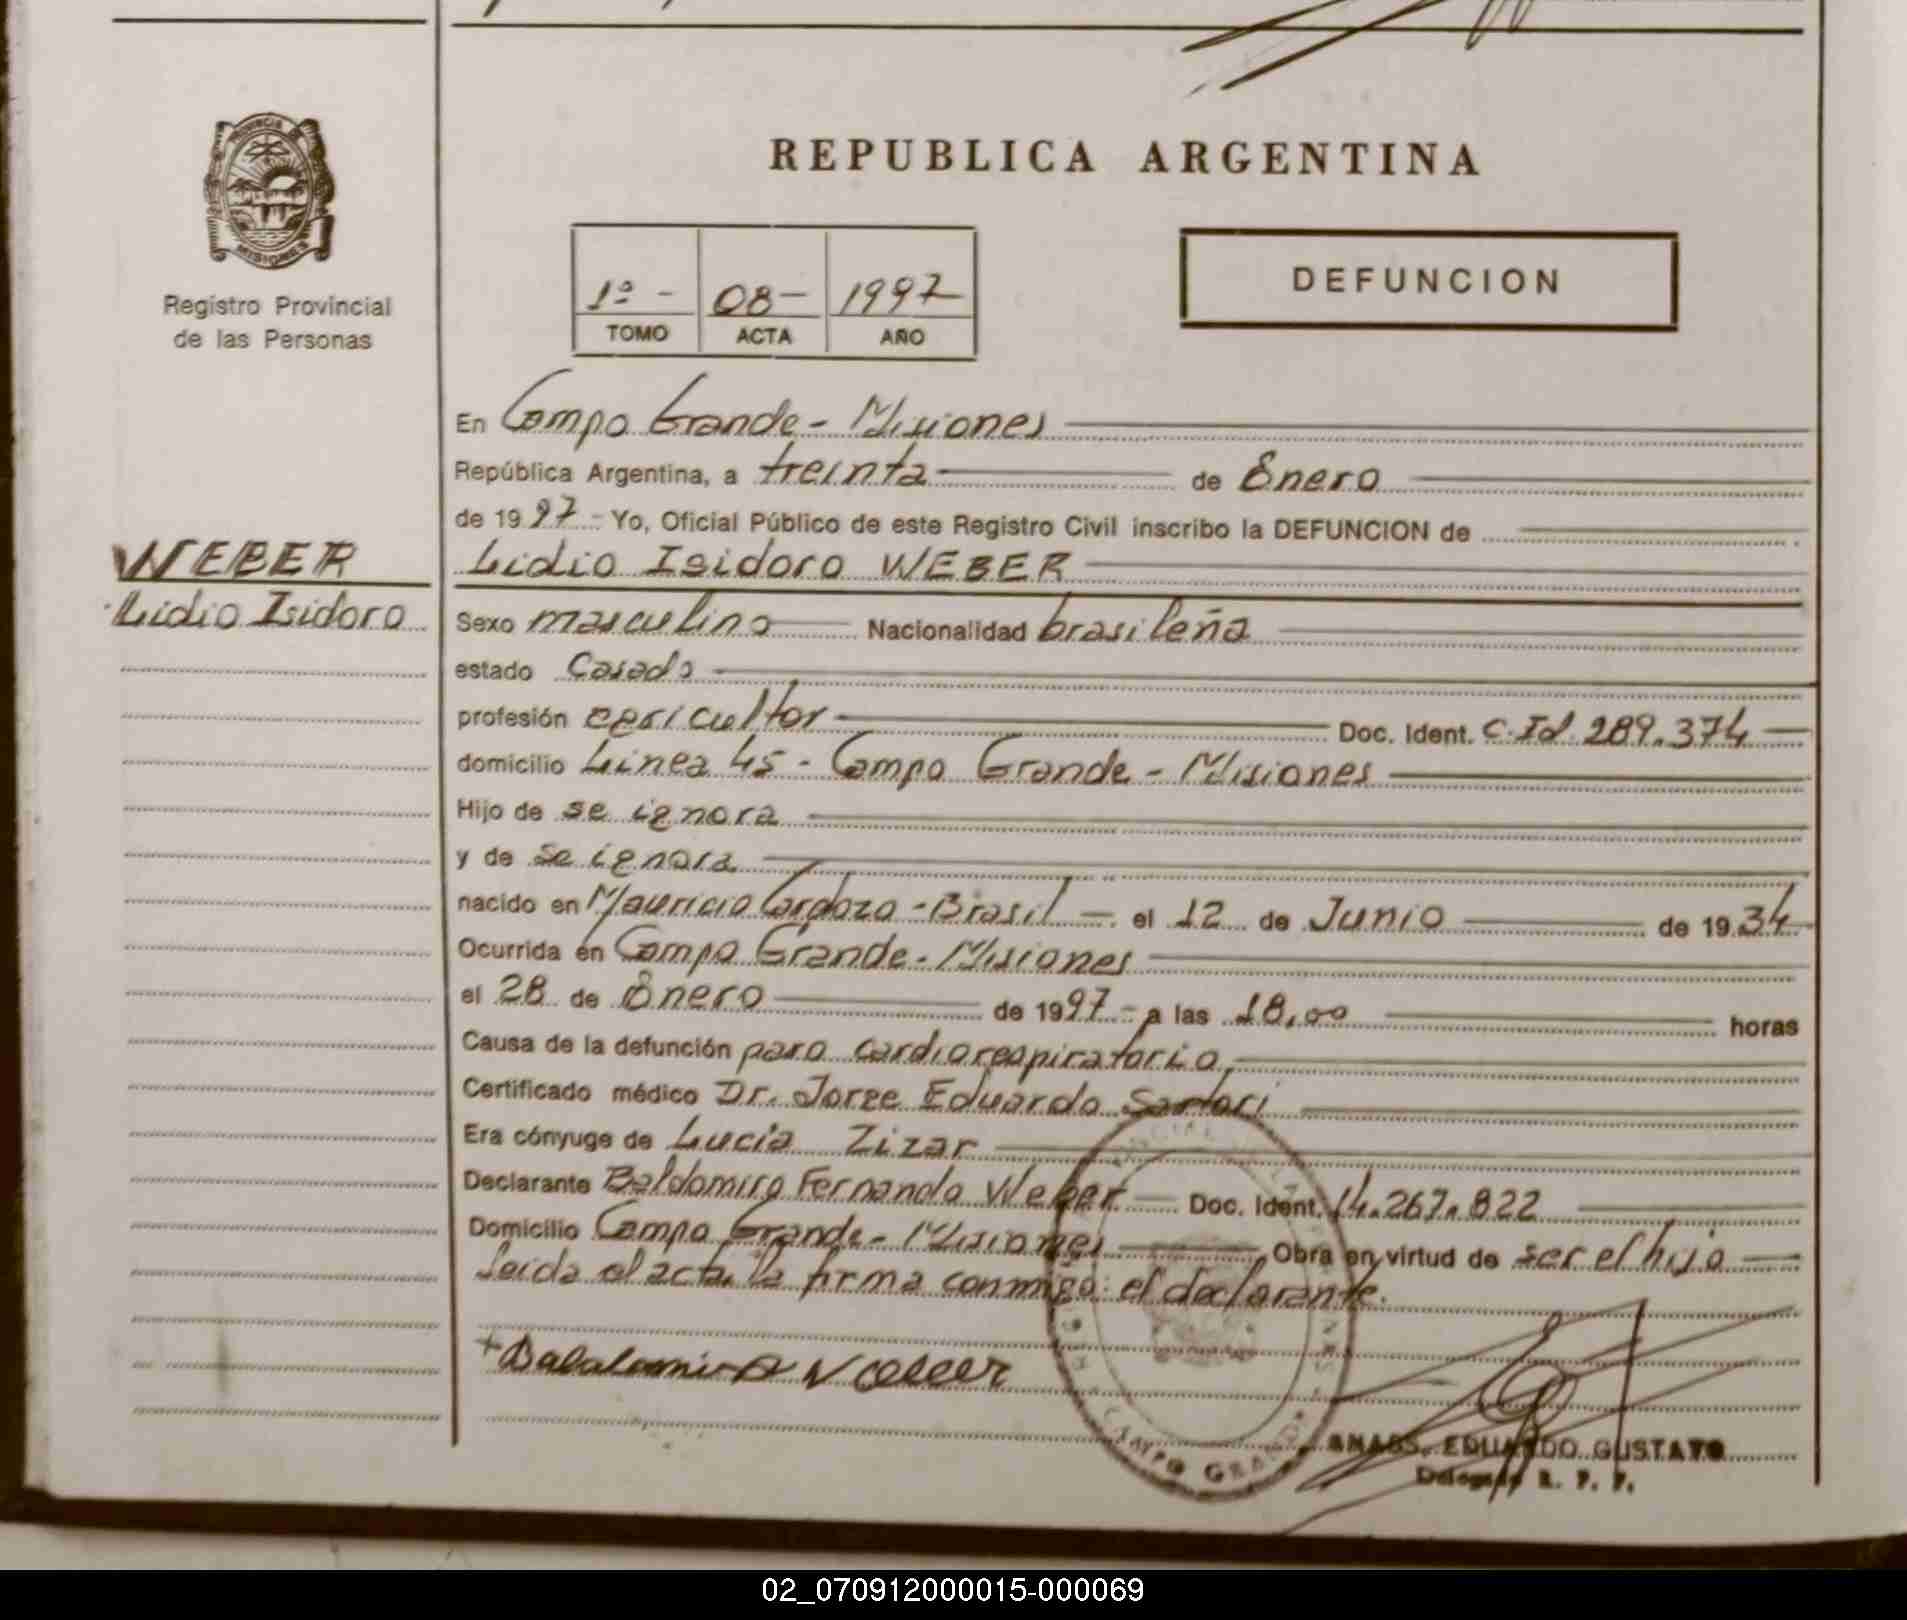 PROVINCIA DE
MISIONES
Registro Provincial
de las Personas
REPUBLICA ARGENTINA
1º - 08 - 1997
TOMO ACTA AÑO
DEFUNCION
WEBER
Lidio Isidoro
En Campo Grande - Misiones
República Argentina, a treinta de Enero
de 1997 - Yo, Oficial Público de este Registro Civil inscribo la DEFUNCION de
Lidio Isidoro WEBER
Sexo masculino Nacionalidad brasileña
estado Casado
profesión Doc. Ident. C.Id. 289.374
domicilio Linea 45 - Campo Grande - Misiones
Hijo de se ignora
y de se ignora
nacido en Mauricio Cardozo - Brasil - el 12 de Junio de 1934
Ocurrida en Campo Grande - Misiones
el 28 de Enero de 1997 - a las 18,00 horas
Causa de la defunción paro cardiorespiratorio,
Certificado médico Dr. Jorge Eduardo Sartori
Era cónyuge de Lucia Zizar
Declarante Baldomiro Fernando Weber Doc. Ident. 14.267.822
Domicilio Campo Grande - Misiones Obra en virtud de ser el hijo
Leida el acta, la firma conmigo: el declarante.
CAMPO GRANDE
EDUARDO GUSTAVO
Delegado R. P. P.
02_070912000015-000069